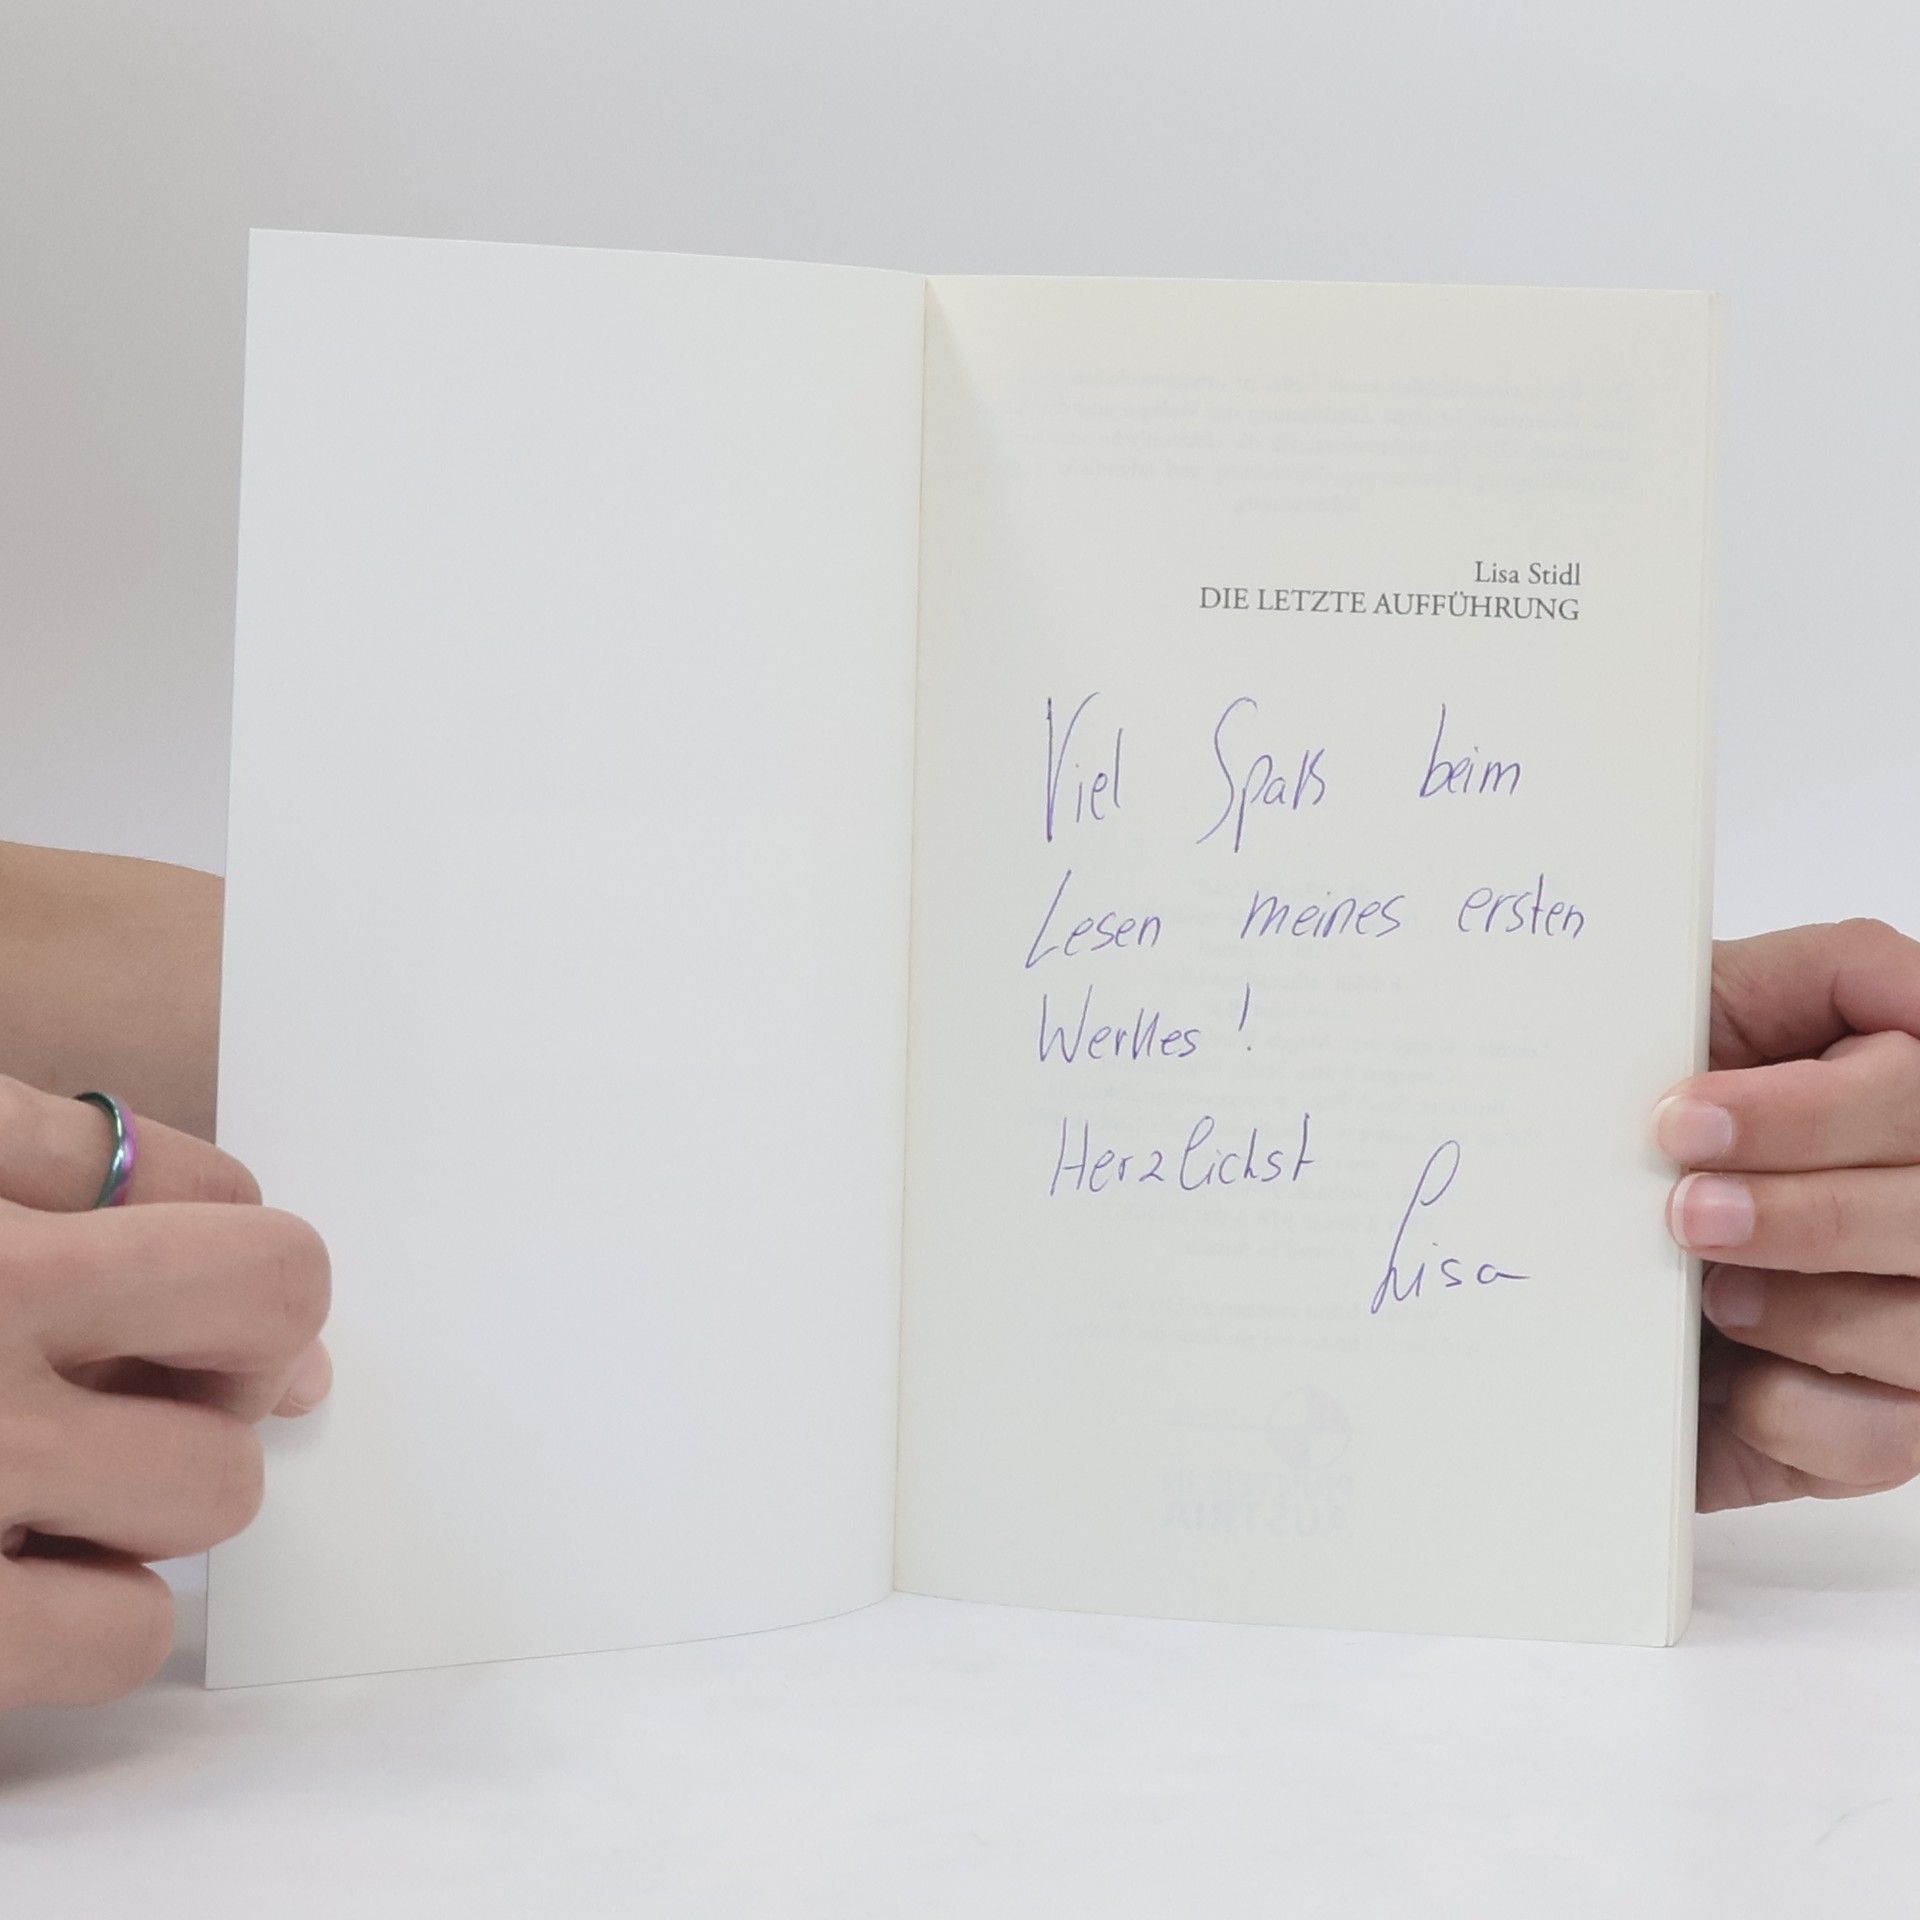 Lisa Stidl
DIE LETZTE AUFFÜHRUNG
Viel Spaß beim
Lesen meines ersten
Werkes!
Herzlichst
Lisa